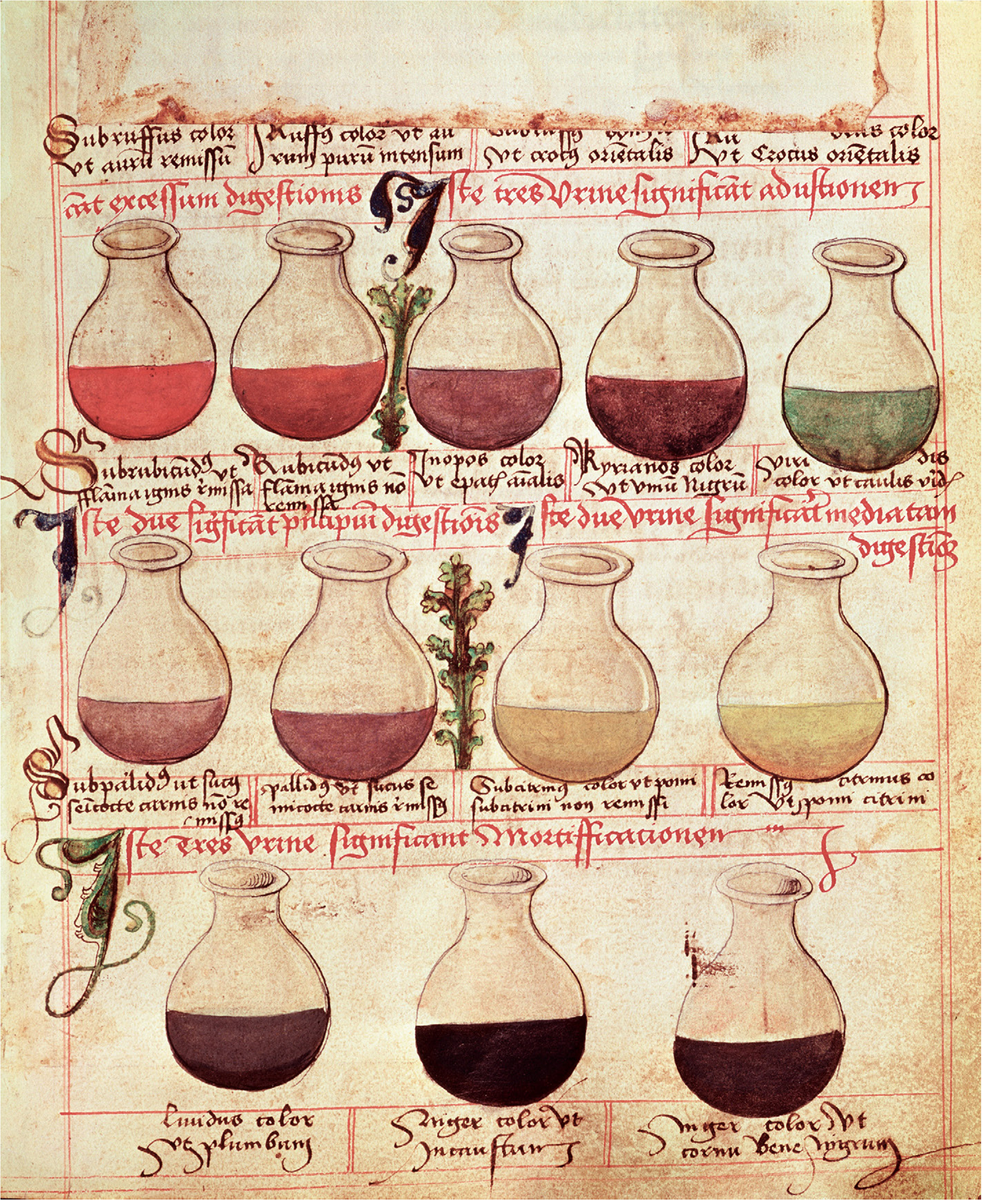 Subruffus color
ut aurū remissū
Ruffꝯ color ut au
rum purū intensum
ut crocꝯ orientalis
color
ut Crocus oriētalis
cāt excessum digestionis
Iste tres Urine significāt adustionem
Subrubicūdꝯ ut
flāma ignis r̄missa
Rubicūdꝯ ut
flāma ignis nō
remissa
Inopos color
ut epatꝭ aīalis
Kyrianos color
ut vinū Nigrū
viri dis
color ut caulis viꝛid
Iste due sigficāt pncipiū digestiōis
Iste due urine significāt mediatam
digestiōꝫ
Subpalidꝯ ut sucꝯ
semicocte carnis nō re
missꝯ
pallidꝯ ut sucus se
micocte carnis r̄missꝯ
Subcitrinꝯ color ut pomi
subcitrini non remissi
Remissꝯ citrinus co
lor ut pomi citrini
Iste tres urine significant Mortifficacionem
Liuidus color
ut plumbum
Niger color ut
Incaustum
Niger color ut
cornu bene nygrum